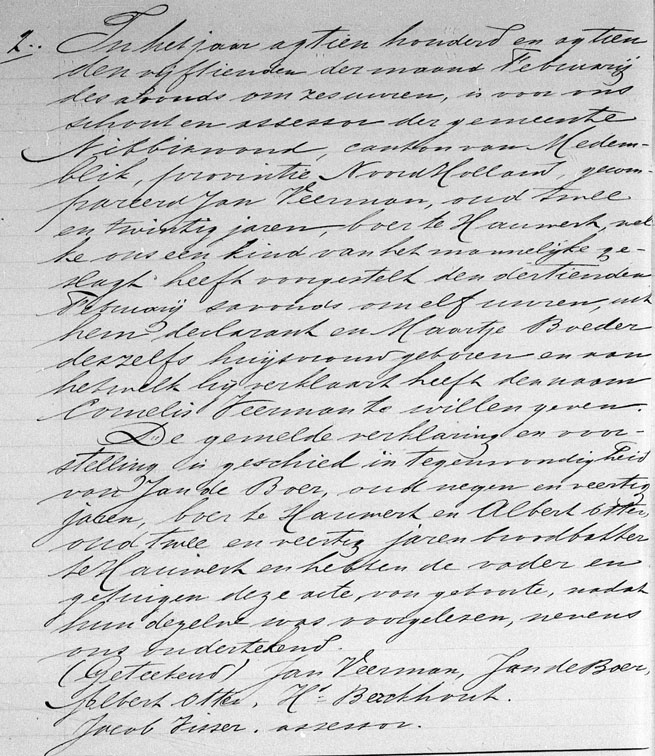 2.. In het jaar agtien honderd en agtien
den vijftienden der maand Februarij
des avonds om zes uuren, is voor ons
schout en assessor der gemeente
Nibbixwoud, canton van Medem-
blik, provintie Noord Holland, gecom-
pareerd Jan Veerman, oud twee
en twintig jaren, boer te Hauwert, wel
ke ons een kind van het mannelijke ge-
slagt heeft voorgestelt den dertienden
Februarij savonds om elf uuren, uit
hem declarant en Maartje Boeder
deszelfs huijsvrouw geboren en aan
hetwelk hij verklaart heeft den naam
Cornelis Veerman te willen geven.
De gemelde verklaring en voor-
stelling is geschied in tegenwoordigheid
van Jan de Boer, oud negen en veertig
jaren, boer te Hauwert en Albert Otter,
oud twee en veertig jaren broodbakker
te Hauwert en hebben de vader en
getuigen deze acte, van geboorte, nadat
hun dezelve was voorgelesen, nevens
ons ondertekend.
(Geteekend) Jan Veerman, Jan de Boer,
Albert Otter, Hk Berckhout.
Jacob Visser. assessor.